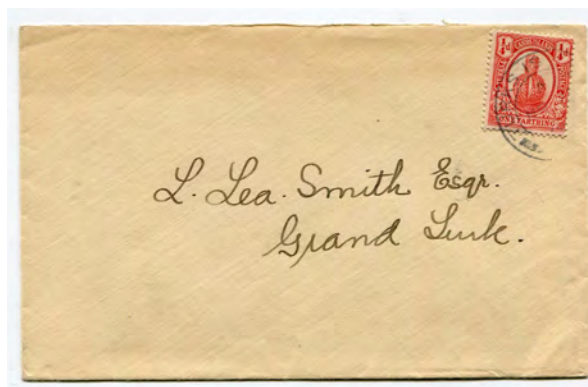 ¼d ¼d
ONE FARTHING
L. Lea. Smith Esqr.
Grand Turk.